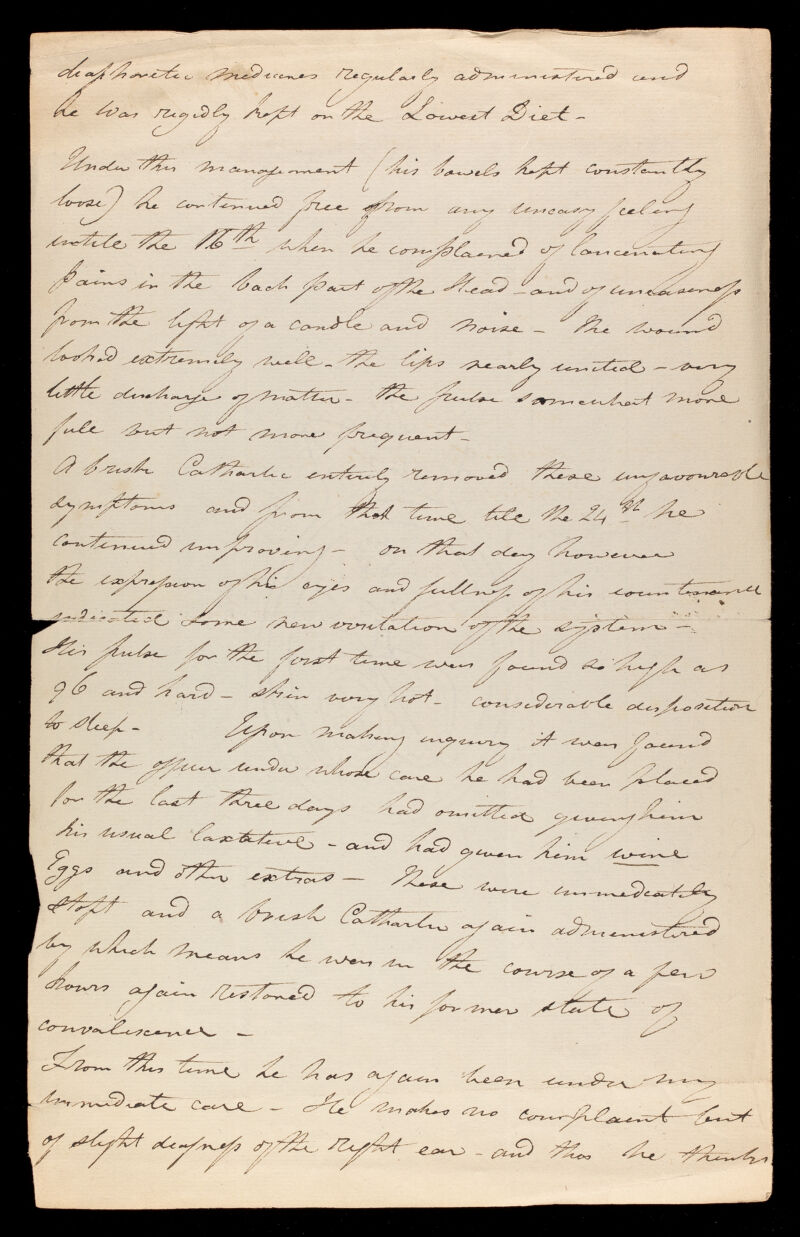 diaphoretic medicines regularly administered and
he was rigidly kept on the Lowest Diet -
Under this management (his bowels kept constantly
loose) he continued free from any uneasy feeling
untile the 16th when he complained of lancenating
pains in the back part of the Head - and of uneaseness
from the light of a candle and noise - The wound
looked extremely well - the lips nearly united - very
little discharge of matter - the pulse somewhat more
full but not more frequent -
A brisk Cathartic entirely removed these unfavourable
symptoms and from that time till the 24th he
continued improving - on that day however
the expression of his eyes and fullness of his countenance
indicated some new irritation of the system -
His pulse for the first time was found so high as
96 and hard - skin very hot - considerable disposition
to sleep - Upon making inquiry it was found
that the officer under whose care he had been placed
for the last three days had omitted giving him
his usual laxtative - and had given him wine
Eggs and other extras - These were immediately
stopt and a brisk Cathartic again administered
by which means he was in the course of a few
hours again restored to his former state of
convalescence -
From this time he has again been under my
immediate care - He makes no complaint but
of slight deafness of the right ear - and this he thinks